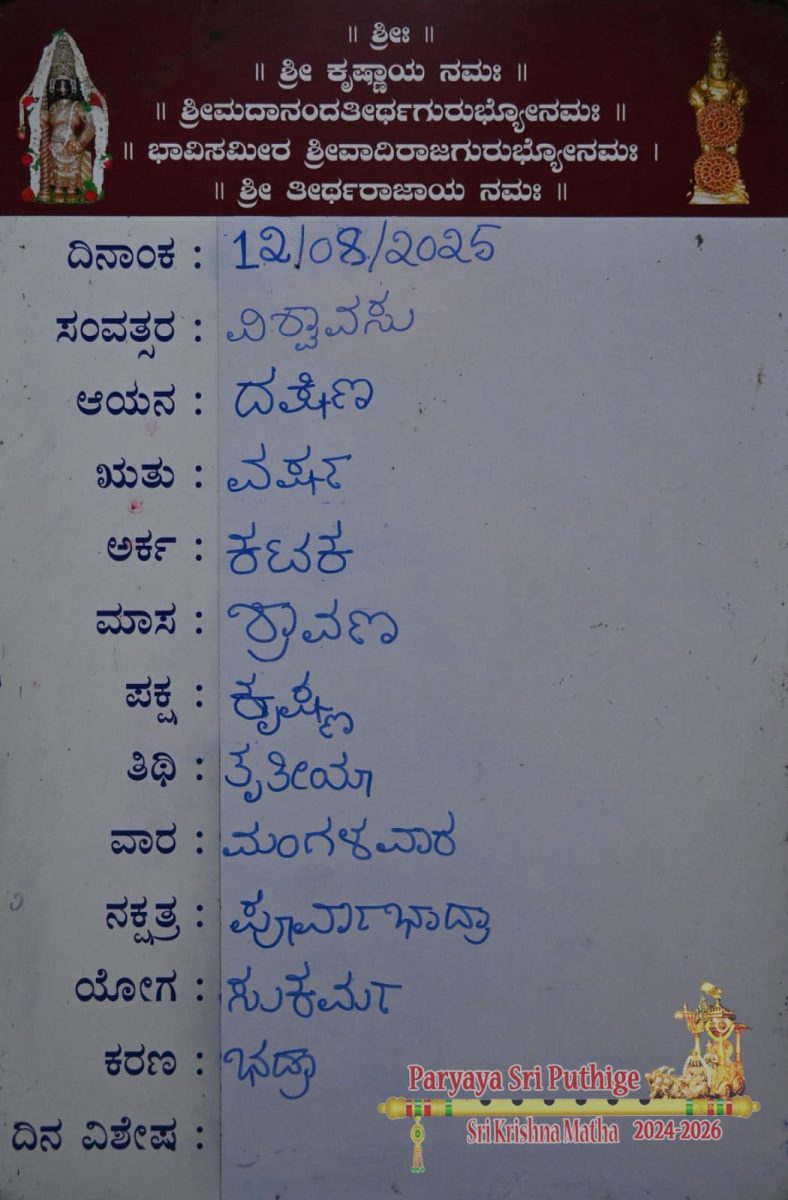 ॥ ಶ್ರೀಃ ॥
॥ ಶ್ರೀ ಕೃಷ್ಣಾಯ ನಮಃ ॥
॥ ಶ್ರೀಮದಾನಂದತೀರ್ಥಗುರುಭ್ಯೋನಮಃ ॥
॥ ಭಾವಿಸಮೀರ ಶ್ರೀವಾದಿರಾಜಗುರುಭ್ಯೋನಮಃ ।
॥ ಶ್ರೀ ತೀರ್ಥರಾಜಾಯ ನಮಃ ॥
ದಿನಾಂಕ : 12/08/2025
ಸಂವತ್ಸರ : ವಿಶ್ವಾವಸು
ಆಯನ : ದಕ್ಷಿಣ
ಋತು : ವರ್ಷ
ಅರ್ಕ : ಕಟಕ
ಮಾಸ : ಶ್ರಾವಣ
ಪಕ್ಷ : ಕೃಷ್ಣ
ತಿಥಿ : ತೃತೀಯಾ
ವಾರ : ಮಂಗಳವಾರ
ನಕ್ಷತ್ರ : ಪೂರ್ವಾಭಾದ್ರಾ
ಯೋಗ : ಸುಕರ್ಮ
ಕರಣ : ಭದ್ರಾ
ದಿನ ವಿಶೇಷ :
Paryaya Sri Puthige
Sri Krishna Matha 2024-2026